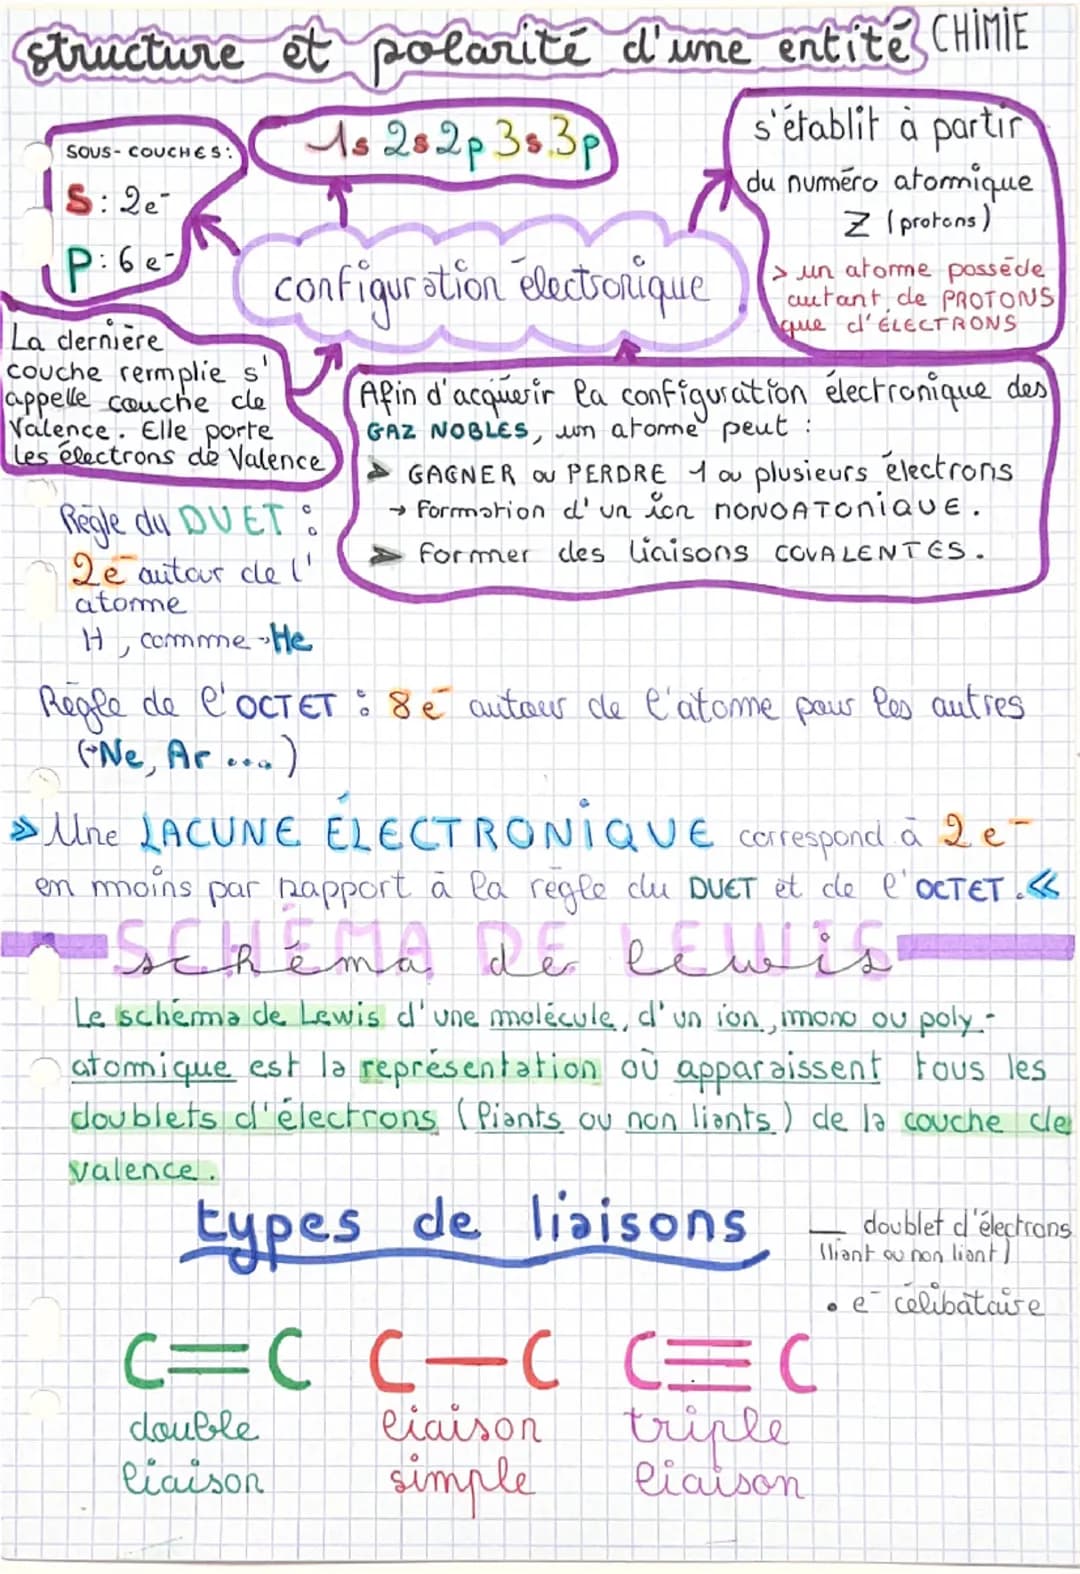 structure et polarité d'une entité CHIMIE
SOUS-COUCHES:
S: 2e-
P: 6e-
1s 2s 2p 3s 3p
s'établit à partir
du numéro atomique
Z (protons)
> un atome possède
autant de PROTONS
que d'ÉLECTRONS
configuration électronique
La dernière
couche remplie s'
appelle couche de
Valence. Elle porte
les électrons de Valence
Afin d'acquérir la configuration électronique des
GAZ NOBLES, un atome peut :
➤ GAGNER ou PERDRE 1 ou plusieurs électrons
→ Formation d'un ion MONOATOMIQUE.
➤ Former des liaisons COVALENTES.
Règle du DUET :
2e- autour de l'
atome
H, comme →He
Règle de l'OCTET : 8e- autour de l'atome pour les autres
(→Ne, Ar ....)
» Une LACUNE ÉLECTRONIQUE correspond à 2e-
en moins par rapport à la règle du DUET et de l'OCTET. «
SCHÉMA DE LEWIS
schéma de lewis
Le schéma de Lewis d'une molécule, d'un ion, mono ou poly-
atomique est la représentation où apparaissent tous les
doublets d'électrons (liants ou non liants) de la couche de
valence.
types de liaisons
— doublet d'électrons
(liant ou non liant)
• e- célibataire
C=C C—C C≡C
double liaison triple
liaison simple liaison